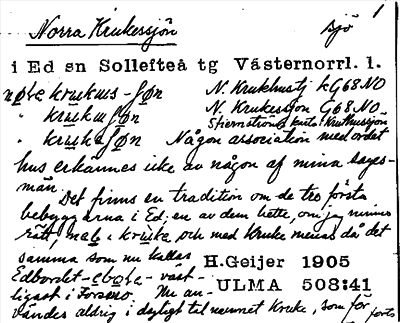 1
Norra Krukessjön sjö
i Ed sn Sollefteå tg Västernorrl. l.
nøłe krukus-søn N. Krukhustj kG68NO
" krukusøn N. Krukessjön G68NO
Stjernströms karta: Kruthussjön
" krukasøn Någon association med ordet
hus erkännes icke av någon af mina sages-
män.
Det finns en tradition om de tre första
bebyggarna i Ed, en av dem hette, om jag minns
rätt, kruke och med Kruke menas då det
samma som nu kallas H.Geijer 1905
Edbordet väst-
ligast i Forsmo. Nu an- ULMA 508:41
vändes aldrig i dagligt tal namnet Kruke, som för